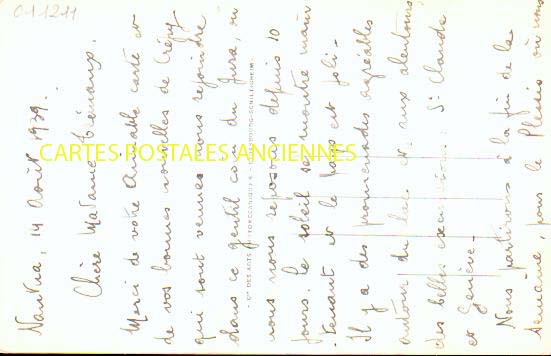 01-1211
Nantua, 14 Août 1939.
Chère Madame
Merci de votre aimable carte et
de vos bonnes nouvelles de Crépy
qui sont venues nous rejoindre
dans ce gentil coin du Jura, où
nous nous reposons depuis 10
jours. Le soleil se montre main-
tenant et le pays est joli.
Il y a des promenades agréables
autour du lac et aux alentours
des belles excursions : St Claude
et Genève.
Nous partirons à la fin de la
semaine, pour le Plessis où nous
CARTES POSTALES ANCIENNES